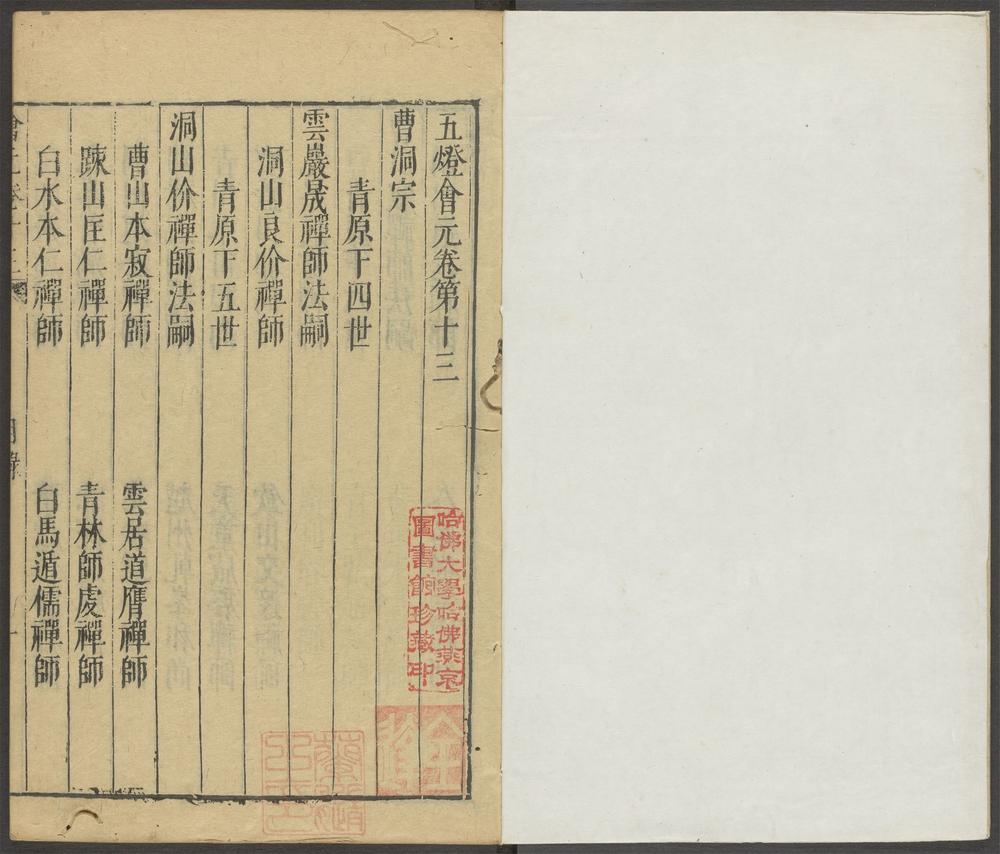 五燈會元卷第十三
曹洞宗
青原下四世
雲巖晟禪師法嗣
洞山良价禪師
青原下五世
洞山价禪師法嗣
曹山本寂禪師 雲居道膺禪師
踈山匡仁禪師 青林師虔禪師
白水本仁禪師 白馬遁儒禪師
哈佛大學哈佛燕京
圖書館珍藏印